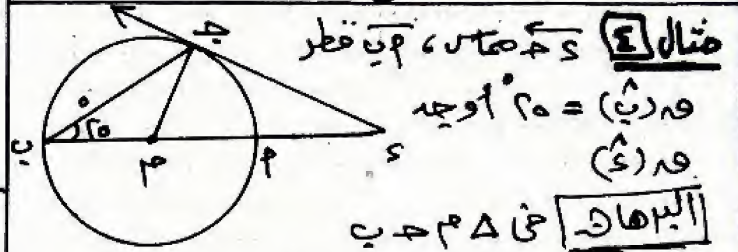 مثال ٤ ءجـ مماس ، أب قطر
ق(بَ) = ٢٥° أوجد
ق(ءَ)
البرهان فى Δ م جـ ب
جـ
٢٥°
ب
م
أ
ء